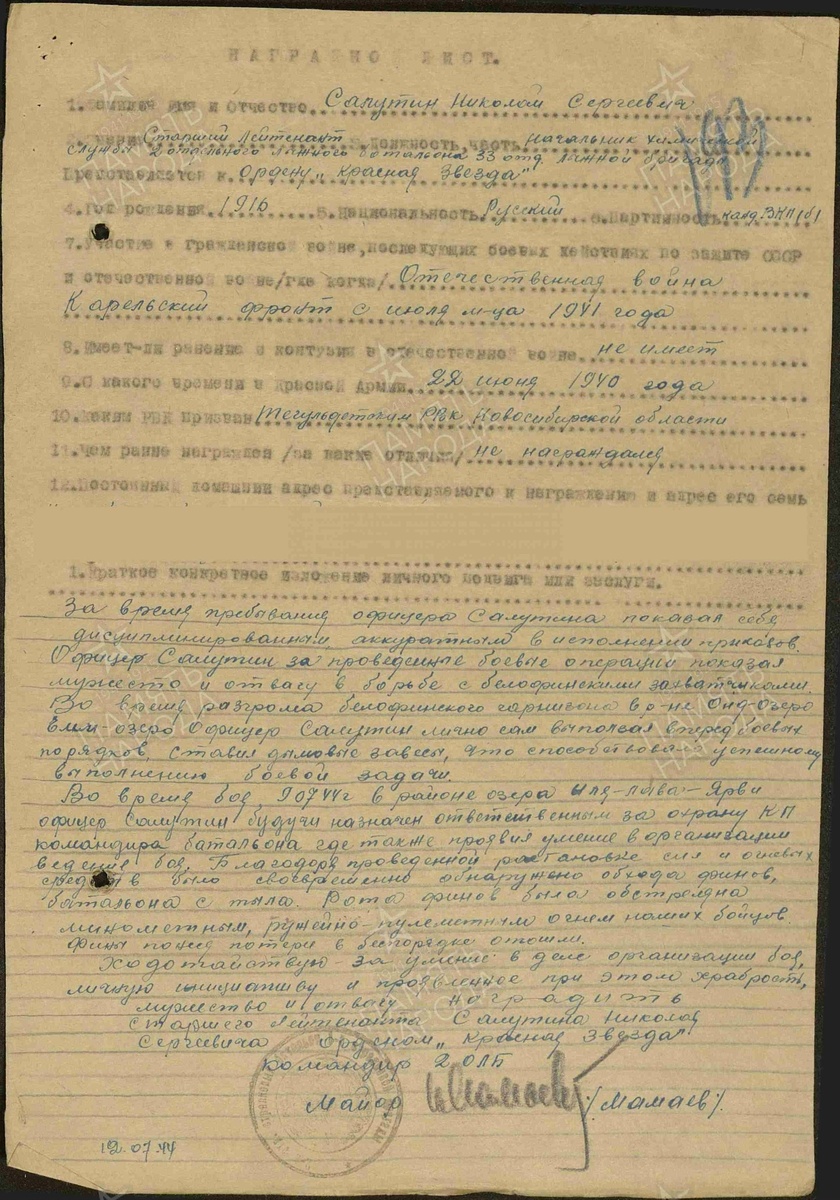 НАГРАДНО ЛИСТ.
1. Фамилия имя и Отчество. Салутин Николай Сергеевич
Звание Старший Лейтенант Должность, часть Начальник химической
службы 2 отдельного лыжного батальона 33 отд лыжной бригады
Представляется к Ордену „Красная Звезда"
4. Год рождения 1916 5. Национальность Русский 6. Партийность канд. ВКП(б)
7. Участие в гражданской войне, последующих боевых действиях по защите СССР
и отечественной войне /где когда/ Отечественная война
Карельский фронт с июля м-ца 1941 года
8. Имеет-ли ранение и контузии в отечественной войне не имеет
9. С какого времени в Красной Армии 22 июня 1940 года
10. Каким РВК призван Тегульдетским РВК Новосибирской области
11. Чем ранее награжден /за какие отличия/ не награждался
12. Постоянный домашний адрес представляемого к награждению и адрес его семь
1. Краткое конкретное изложение личного подвига или заслуги.
За время пребывания офицера Салутина показал себя
дисциплинированным, аккуратным в исполнении приказов.
Офицер Салутин за проведенные боевые операции показал
мужество и отвагу в борьбе с белофинскими захватчиками.
Во время разгрома белофинского гарнизона в р-не Онд-Озеро
озеро Офицер Салутин лично сам выползал вперед боевых
порядков, ставил дымовые завесы, что способствовало успешному
выполнению боевой задачи.
Во время боя 9 07 44г в районе озера Ярви
офицер Салутин будучи назначен ответственным за охрану КП
командира батальона где также проявил умение в организации
ведения боя. Благодаря проведенной растановке сил и огневых
средств было своевременно обнаружено обхода финов,
батальона с тыла. Рота финов была обстреляна
минометным, ружейно-пулеметным огнем наших бойцов.
Фины понеся потери в беспорядке отошли.
Ходотайствую за умение в деле организации боя,
личную инициативу и проявленное при этом храбрость,
мужество и отвагу наградить
Старшего Лейтенанта Салутина Николая
Сергеевича орденом „Красная Звезда"
Командир 2 ОЛБ
Майор /Мамаев/.
12.07.44
ПАМЯТЬ НАРОДА